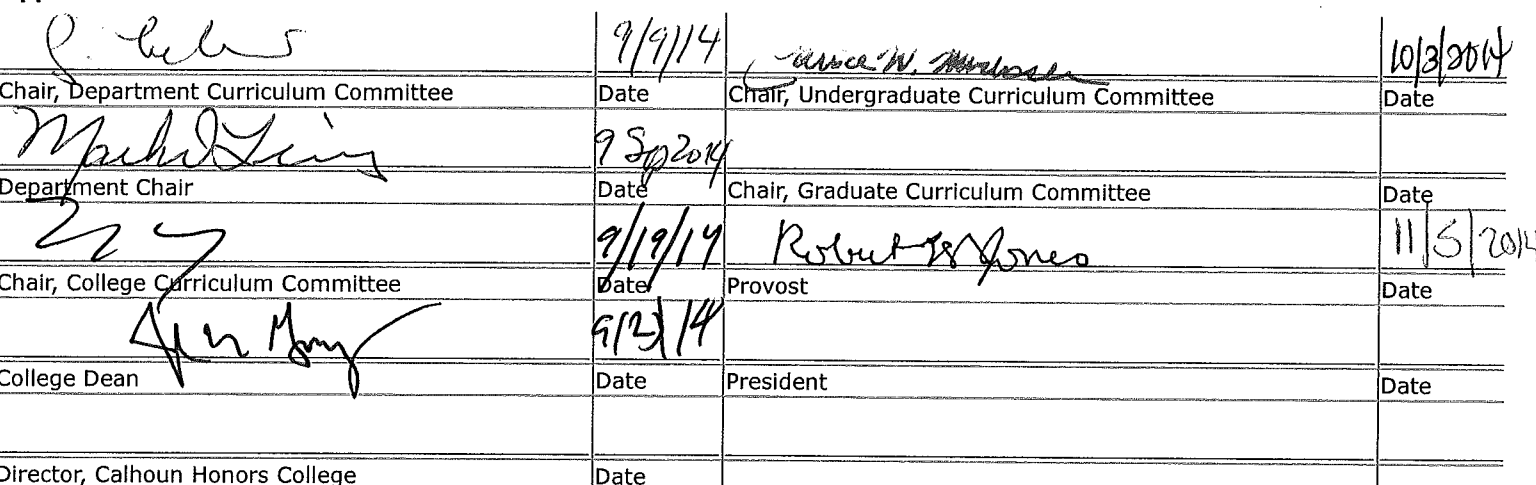 9/9/14 10/3/2014
Chair, Department Curriculum Committee Date Chair, Undergraduate Curriculum Committee Date
9 Sep 2014
Department Chair Date Chair, Graduate Curriculum Committee Date
9/19/14 Robert H Jones 11/5/2014
Chair, College Curriculum Committee Date Provost Date
College Dean Date President Date
Director, Calhoun Honors College Date